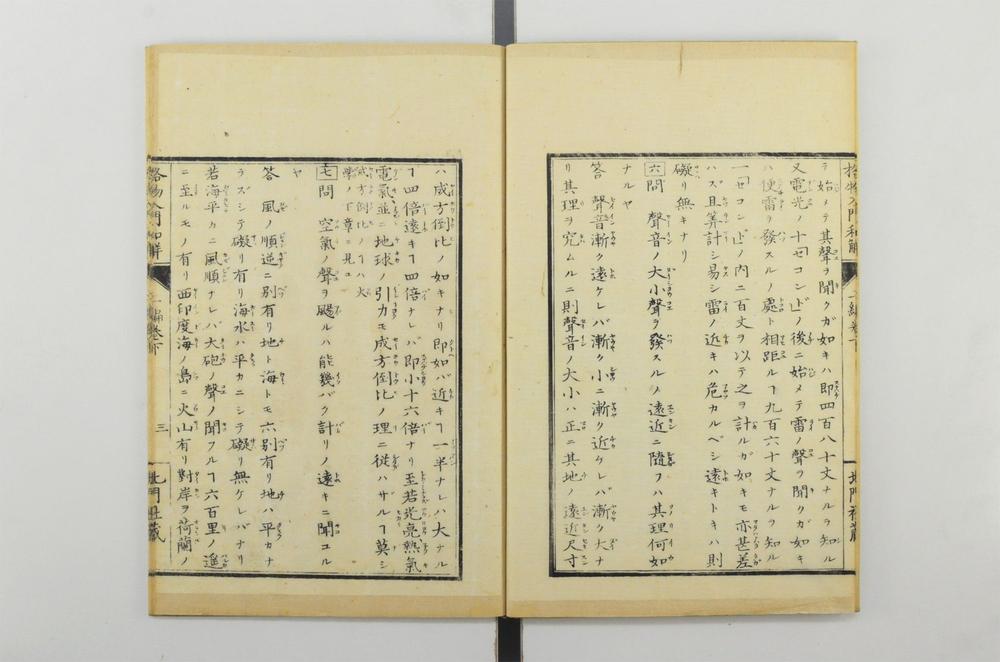 格物入門和解 二編巻下 北門社蔵
テ始メテ其聲ヲ聞クガ如キハ即四百八十丈ナルヲ知ル
又電光ノ十「セコンド」ノ後ニ始メテ雷ノ聲ヲ聞クガ如キ
ハ便雷ヲ發スルノ處ト相距ルヿ九百六十丈ナルヲ知ル
一「セコンド」ノ內ニ百丈ヲ以テ之ヲ計ルガ如キモ亦甚差
ハズ且算計シ易シ雷ノ近キハ危カルベシ遠キトキハ則
礙リ無キナリ
六 問 聲音ノ大小聲ヲ發スルノ遠近ニ隨フハ其理何如
ナルヤ
答 聲音漸ク遠ケレバ漸ク小ニ漸ク近ケレバ漸ク大ナ
リ其理ヲ究ムルニ則聲音ノ大小ハ正ニ其地ノ遠近尺寸
ハ成方倒比ノ如キナリ即如バ近キヿ一半ナレハ大ナル
ヿ四倍遠キヿ四倍ナレバ即小十六倍ナリ至若光亮熱氣
電氣並ニ地球ノ引力モ成方倒比ノ理ニ從ハサルヿ莫シ
成方倒比ノヿハ火
學ノ下章ニ見ユ
七 問 空氣ノ聲ヲ颺ルハ能幾バク計リノ遠キニ聞コル
ヤ
答 風ノ順逆ニ別有リ地ト海トモ亦別有リ地ハ平カナ
ラズシテ礙リ有リ海水ハ平カニシテ礙リ無ケレバナリ
若海平カニ風順ナレバ大砲ノ聲ノ聞フルヿ六百里ノ遙
ニ至ルモノ有リ西印度海ノ島ニ火山有リ對岸ヲ荷蘭ノ
格物入門和解 二編巻下 三 北門社蔵